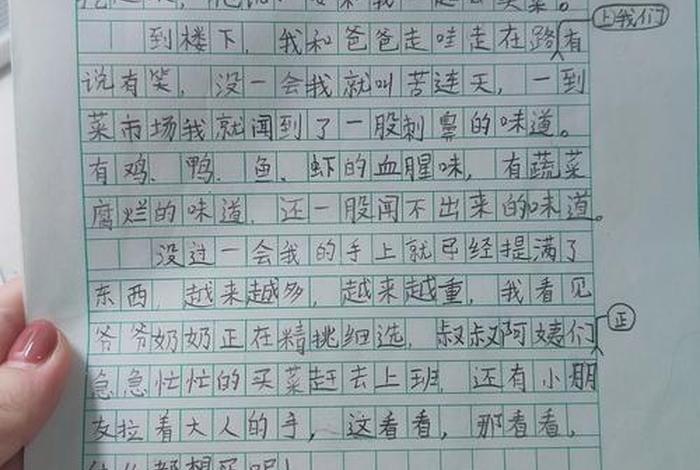 上我们
到楼下，我和爸爸走哇走在路有
说有笑，没一会我就叫苦连天，一到
菜市场我就闻到了一股刺鼻的味道。
有鸡、鸭、鱼、虾的血腥味，有蔬菜
腐烂的味道，还一股闻不出来的味道。
没过一会我的手上就已经提满了
东西，越来越多，越来越重，我看见
爷爷奶奶正在精挑细选，叔叔阿姨们
正
急急忙忙的买菜赶去上班，还有小朋
友拉着大人的手，这看看，那看看，
都想买呢！